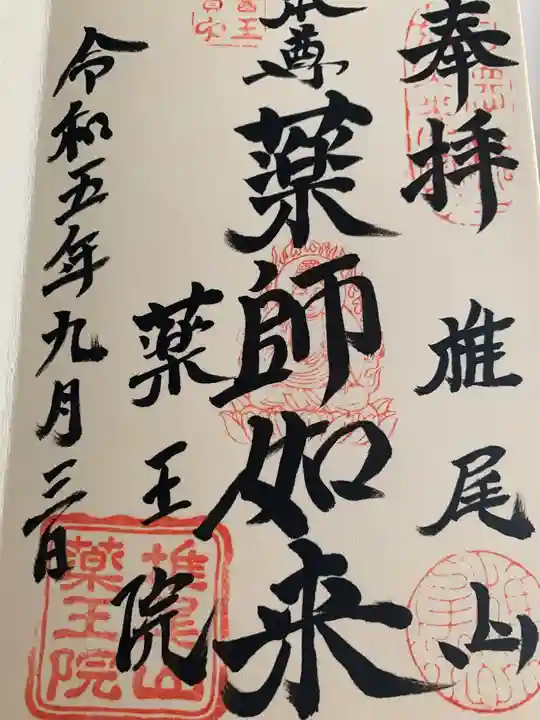 奉拝
椎尾山
本尊
薬師如来
薬王院
令和五年九月三日
椎尾山
薬王院